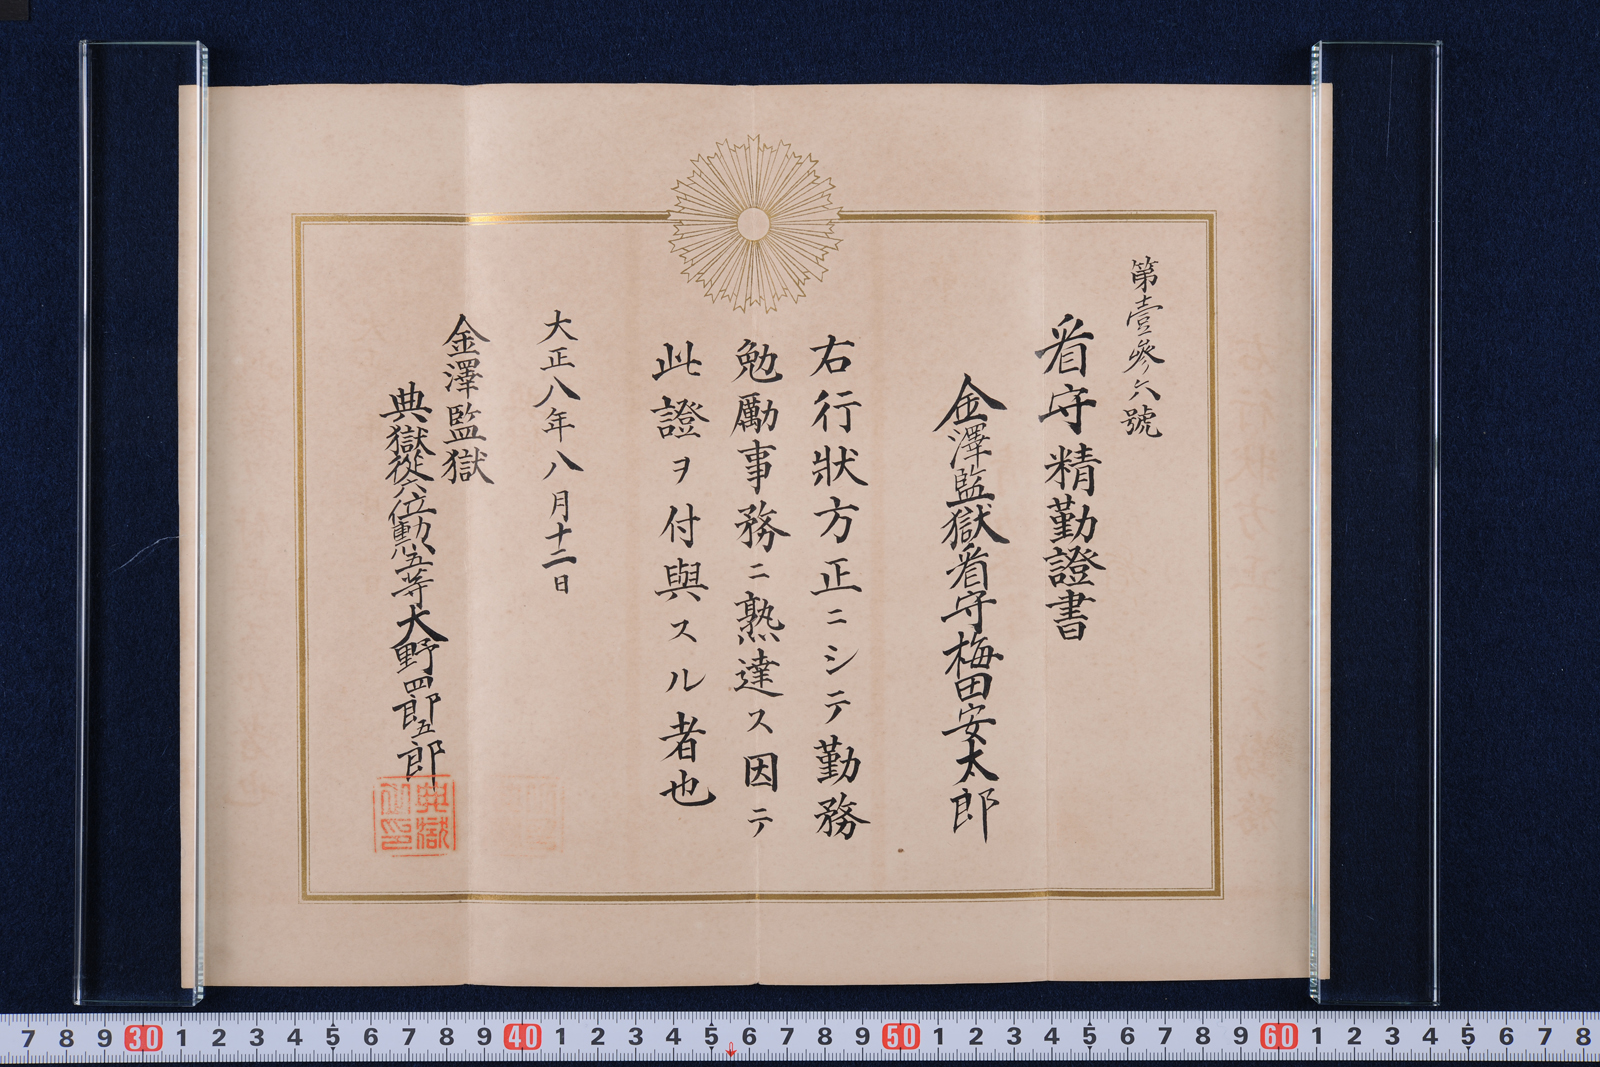 第壹參六號
看守精勤證書
金澤監獄看守梅田安太郎
右行狀方正ニシテ勤務
勉勵事務ニ熟達ス因テ
此證ヲ付與スル者也
大正八年八月十二日
金澤監獄
典獄從六位勳五等大野四郎五郎
典獄
之印
7 8 9 30 1 2 3 4 5 6 7 8 9 40 1 2 3 4 5 6 7 8 9 50 1 2 3 4 5 6 7 8 9 60 1 2 3 4 5 6 7 8